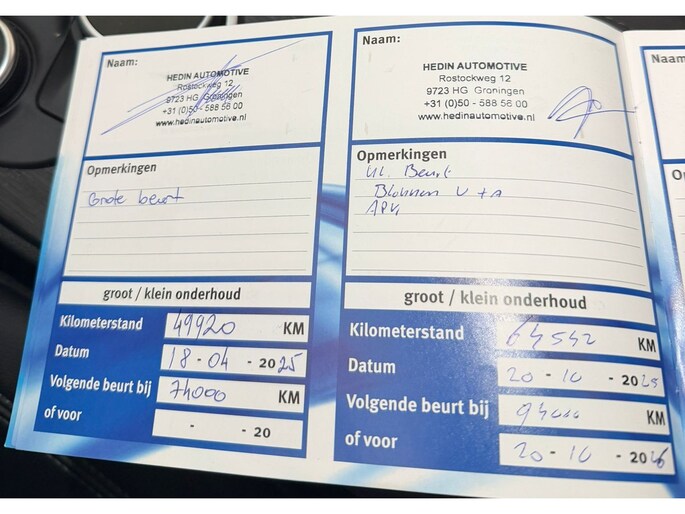 Naam:
HEDIN AUTOMOTIVE
Rostockweg 12
9723 HG Groningen
+31 (0)50 - 588 56 00
www.hedinautomotive.nl
Opmerkingen
Grote beurt
groot / klein onderhoud
Kilometerstand 49920 KM
Datum 18 - 04 - 2025
Volgende beurt bij 74000 KM
of voor - - 20
Naam:
HEDIN AUTOMOTIVE
Rostockweg 12
9723 HG Groningen
+31 (0)50 - 588 56 00
www.hedinautomotive.nl
Opmerkingen
Kl. Beurt
V + A
APK
groot / klein onderhoud
Kilometerstand 64542 KM
Datum 20 - 10 - 2025
Volgende beurt bij 94000 KM
of voor 20 - 10 - 2026
Naam